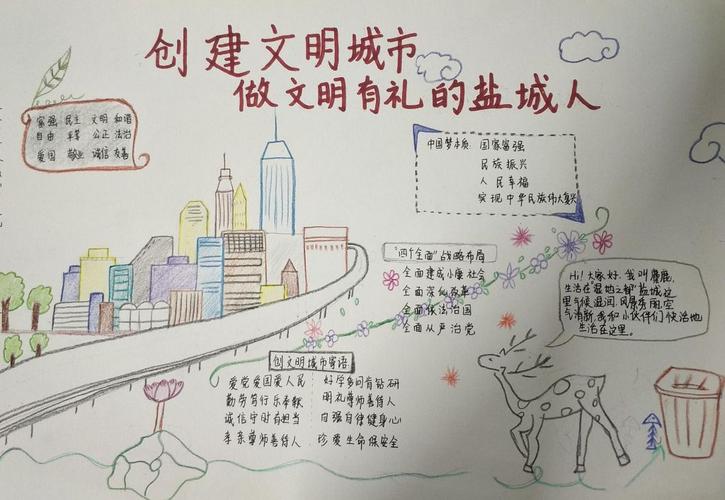 创建文明城市
做文明有礼的盐城人
富强 民主 文明 和谐
自由 平等 公正 法治
爱国 敬业 诚信 友善
中国梦本质 国家富强
民族振兴
人民幸福
实现中华民族伟大复兴
"四个全面"战略布局
全面建成小康社会
全面深化改革
全面依法治国
全面从严治党
Hi!大家好,我叫麋鹿,
生活在"湿地之都"盐城,这
里气候温润,风景秀丽,空
气清新,我和小伙伴们快活地
生活在这里。
创文明城市寄语
爱党爱国爱人民 好学多问有钻研
勤劳笃行乐奉献 明礼尊师善待人
诚信守时有担当 自强自律健身心
孝亲尊师善待人 珍爱生命保安全